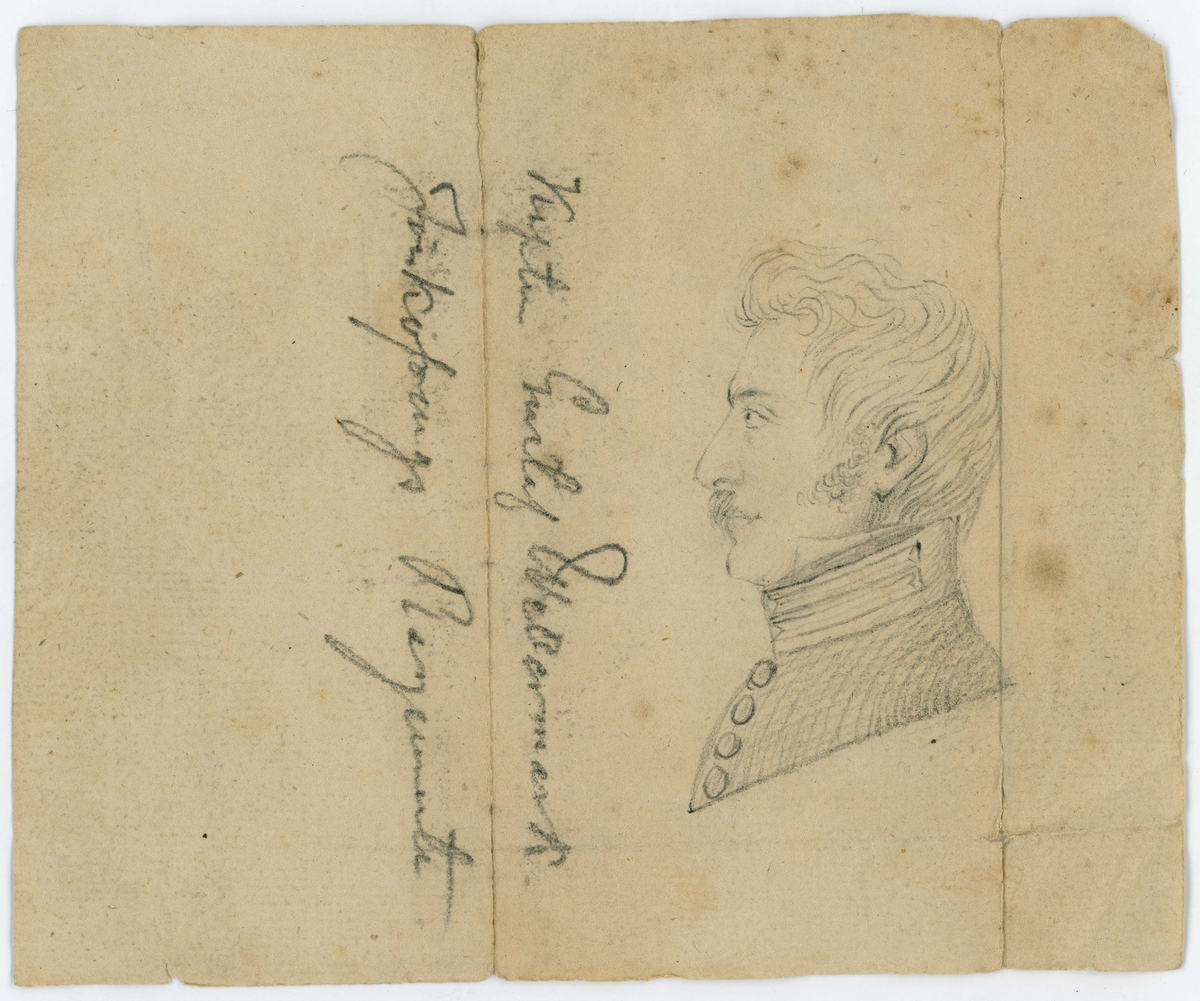 Kapten Gustaf
Jönköpings Regemente.